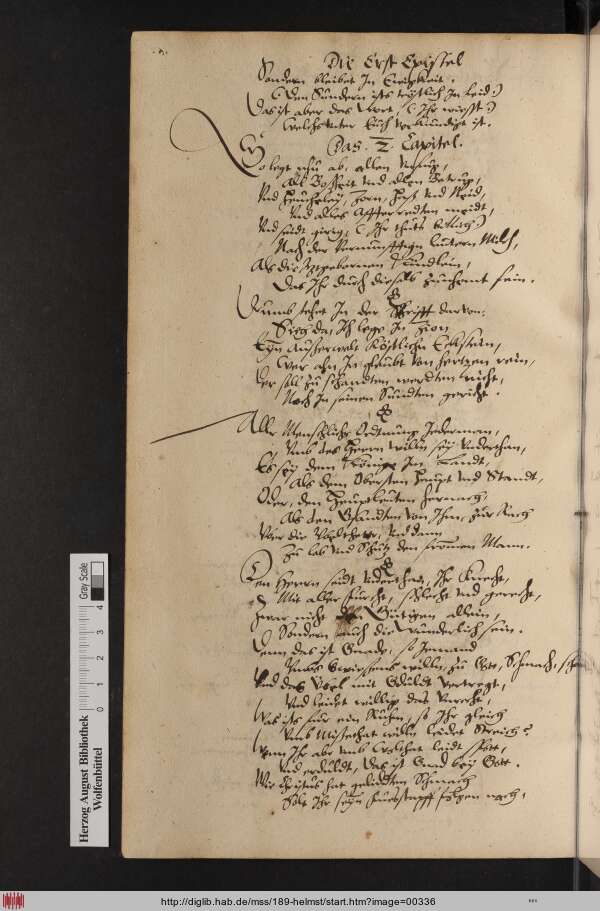 Die Erst Epistel
Sondern bleibet In Ewigkeit.
(Den Sündern ists tröstlich In leid:)
Das ist aber das Wort, (Ihr wisst:)
Welchs unter Euch verkundigt ist.
Das. 2. Capitel.
So legt nhu ab, allen
All Bosheit und allen Betrug,
Und Heucheley, Zorn, Haß und Neid,
Und alles Affterreden meidt,
Und seidt girig, (Ihr thuts
Nach der Vernunfftign lautern Milch,
Als die Itzgebornen Kindlein,
Das Ihr durch dieselb zunemt fein.
Darumb stehet In der Schrifft darvon:
Sieh da, Ich lege In Zion
Eyn Außerweltn Köstlichn Eckstein,
Wer ahn In gleubt von hertzen rein,
Der soll zu schanden werden nicht,
Noch In seinen Sündten gericht.
Aller Menschliche Ordnung Jederman,
Umb des Herrn willn sey Underthan,
Es sey dem Könige Im Landt,
Als dem Obersten Haupt und Standt,
Oder, den Haubtleuten hernach,
Als den Gesandten von Ihm, zur Rach
Uber die Ubelthetter, und dann
Zu lob und Schutz den fromen Mann.
Den Herrn seidt Underthan, Ihr Knecht,
Mit aller furcht, schlecht und gerecht,
Zwar nicht den Gütigen allein,
Sondern auch die wunderlich sein.
Denn das ist Gnade, so Jemand
Umbs Gewissens willn, zu Gott, Schmach,
Und das Ubel mit Gedult vertregt,
Und leidet willig das Unrecht,
Was ists für ein Ruhm, so Ihr gleich
Umb Missethat willn leidet Streich?
Wenn Ihr abr umb Wolthat leidt
Und erduldt, das ist Gnad bey Gott.
Wie Christus hat gelidten Schmach
Solt Ihr seyn fuesstapff folgen nach,
Herzog August Bibliothek
Wolfenbüttel
0 1 2 3 4
Gray Scale
http://diglib.hab.de/mss/189-helmst/start.htm?image=00336